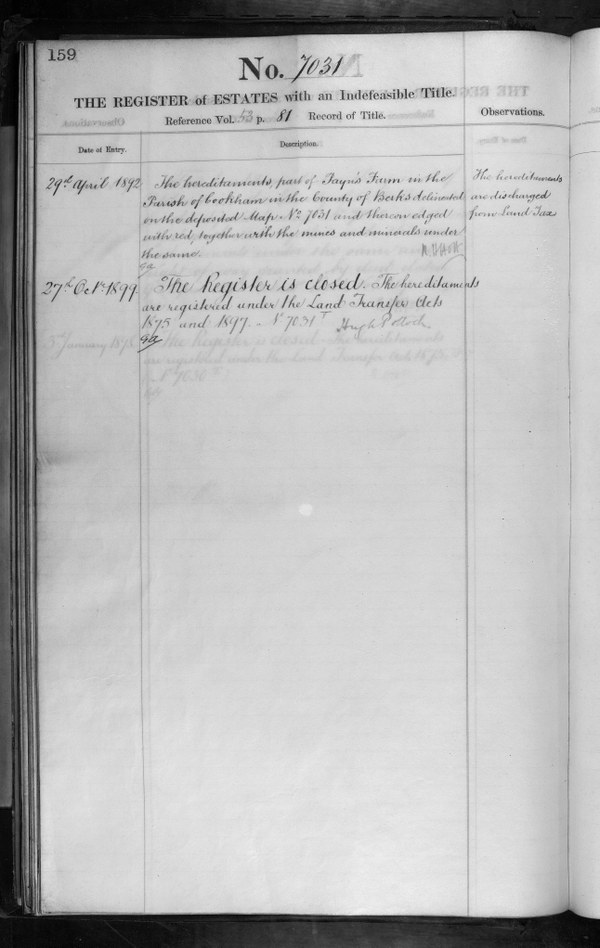 159
No. 7031
THE REGISTER of ESTATES with an Indefeasible Title.
Reference Vol. 53 p. 81 Record of Title.
Observations.
Date of Entry.
Description.
29th April 1892
The hereditaments, part of Payn's Farm in the
Parish of Cookham in the County of Berks delineated
on the deposited Map No 7031 and thereon edged
with red, together with the mines and minerals under
the same.
The hereditaments
are discharged
from Land Tax
27th Octr 1899
The Register is closed. The hereditaments
are registered under the Land Transfer Acts
1875 and 1897. - No 7031 T
Hugh Pollock